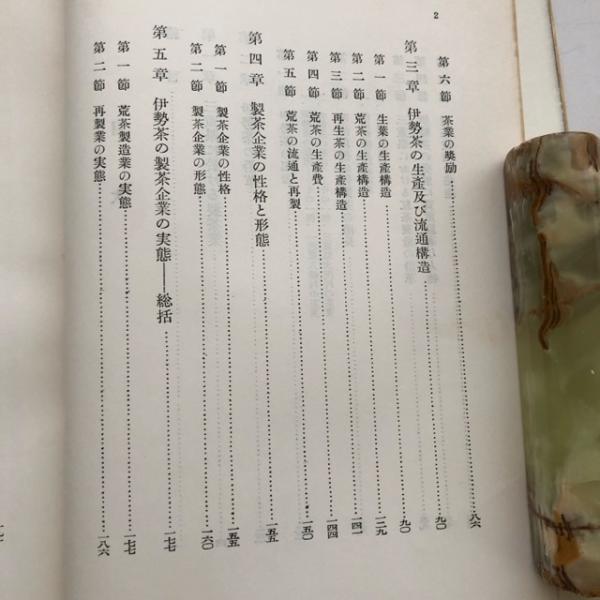 2
第六節 茶業の奨励……八六
第三章 伊勢茶の生産及び流通構造……九〇
第一節 生葉の生産構造……九〇
第二節 荒茶の生産構造……一二九
第三節 再生茶の生産構造……一四一
第四節 荒茶の生産費……一四四
第五節 荒茶の流通と再製……一五〇
第四章 製茶企業の性格と形態……一五五
第一節 製茶企業の性格……一五五
第二節 製茶企業の形態……一六〇
第五章 伊勢茶の製茶企業の実態――総括……一七七
第一節 荒茶製造業の実態……一七七
第二節 再製業の実態……一八六